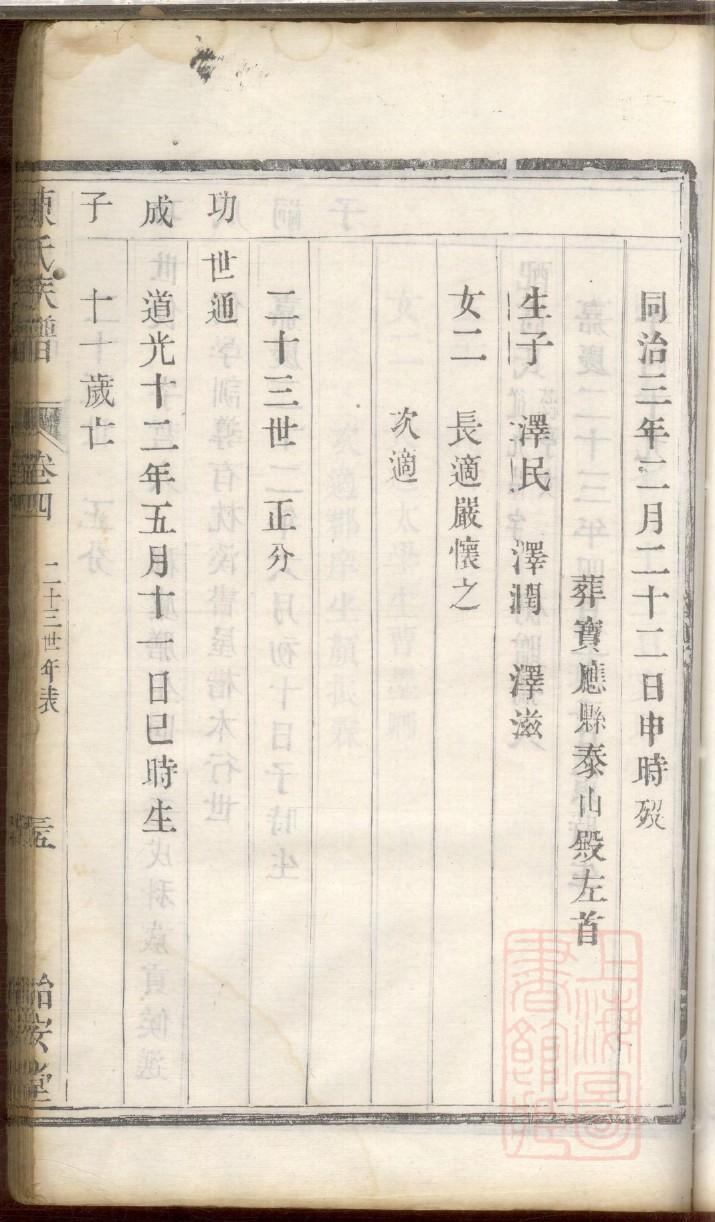 同治三年二月二十二日申時歿
葬寶應縣泰山殿左首
生子 澤民 澤潤 澤滋
女二 長適嚴懷之
次適
二十三世 正分
功 世通
成 道光十二年五月十一日巳時生
子 十十歲亡
陳氏族譜 卷四 二十三世年表 怡安堂
上海圖書館藏